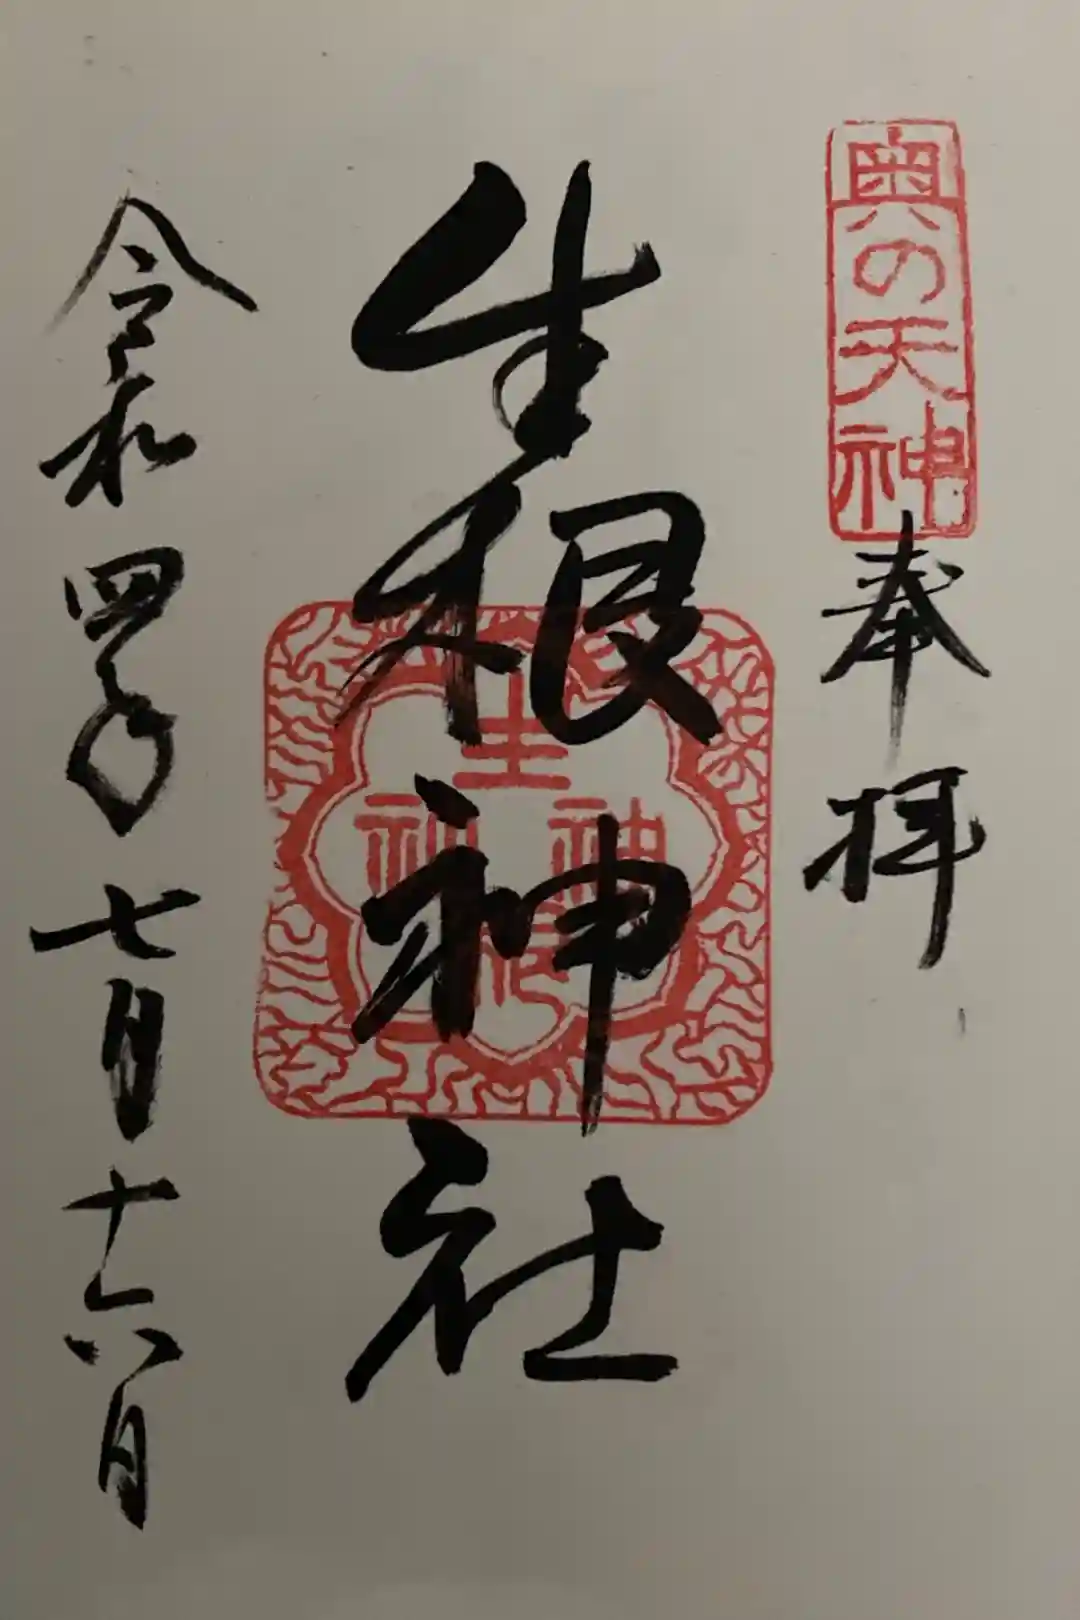 奥の天神
奉拝
生根神社
生根神社
令和四年七月十六日